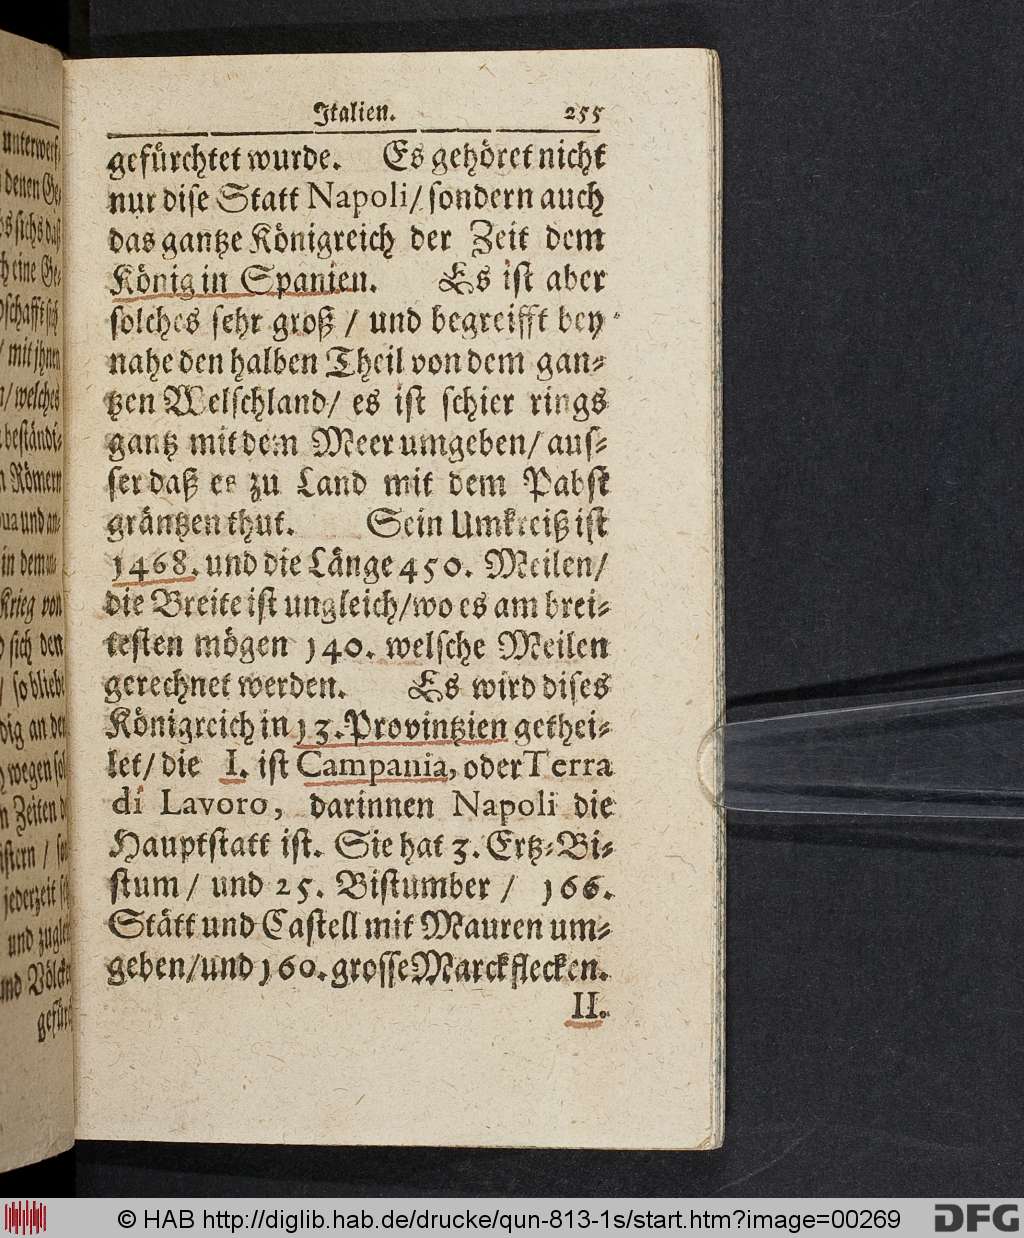 unterwerf-
denen Ge-
sichs daß
eine Ge-
mit jhnen
welches
beständi-
Römern
und an-
in dem
Krieg von
sich den
so bliebe
an der
wegen
Zeiten
jederzeit
und
und Völcker
gefürch
Italien. 255
gefürchtet wurde. Es gehöret nicht
nur dise Statt Napoli/ sondern auch
das gantze Königreich der Zeit dem
König in Spanien. Es ist aber
solches sehr groß / und begreifft bey
nahe den halben Theil von dem gan-
tzen Welschland/ es ist schier rings
gantz mit dem Meer umgeben/ aus-
ser daß es zu Land mit dem Pabst
gräntzen thut. Sein Umkreiß ist
1468. und die Länge 450. Meilen/
die Breite ist ungleich/ wo es am brei-
testen mögen 140. welsche Meilen
gerechnet werden. Es wird dises
Königreich in 13. Provintzien gethei-
let/ die I. ist Campania, oder Terra
di Lavoro, darinnen Napoli die
Hauptstatt ist. Sie hat 3. Ertz-Bi-
stum / und 25. Bistumber / 166.
Stätt und Castell mit Mauren um-
geben/ und 160. grosse Marckflecken.
II.
© HAB http://diglib.hab.de/drucke/qun-813-1s/start.htm?image=00269
DFG